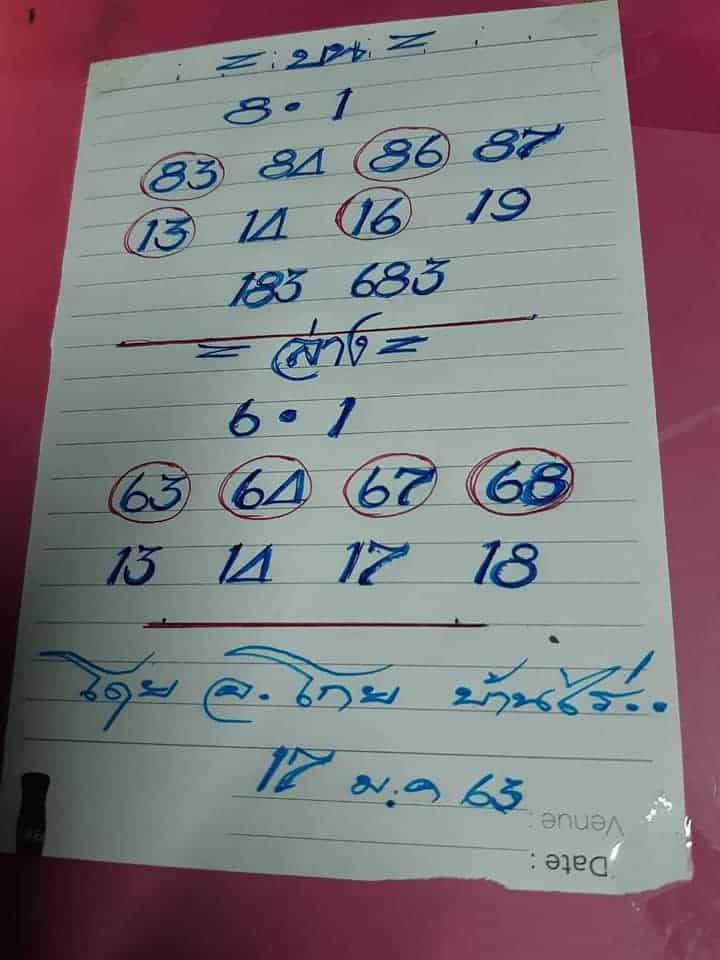 = บน =
8 · 1
83 84 86 87
13 14 16 19
183 683
= ล่าง =
6 · 1
63 64 67 68
13 14 17 18
โดย อ. โกย บ้านไร่..
17 ม.ค 63
Venue :
Date :